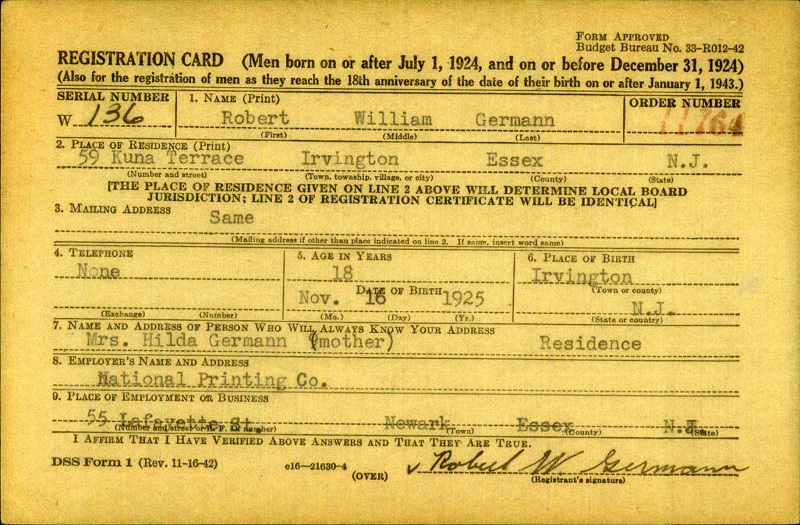 FORM APPROVED
Budget Bureau No. 33-R012-42
REGISTRATION CARD (Men born on or after July 1, 1924, and on or before December 31, 1924)
(Also for the registration of men as they reach the 18th anniversary of the date of their birth on or after January 1, 1943.)
SERIAL NUMBER 1. NAME (Print) ORDER NUMBER
W 136 Robert William Germann 11764
(First) (Middle) (Last)
2. PLACE OF RESIDENCE (Print)
59 Kuna Terrace Irvington Essex N.J.
(Number and street) (Town, township, village, or city) (County) (State)
[THE PLACE OF RESIDENCE GIVEN ON LINE 2 ABOVE WILL DETERMINE LOCAL BOARD
JURISDICTION; LINE 2 OF REGISTRATION CERTIFICATE WILL BE IDENTICAL]
3. MAILING ADDRESS
Same
(Mailing address if other than place indicated on line 2. If same, insert word same)
4. TELEPHONE 5. AGE IN YEARS 6. PLACE OF BIRTH
None 18 Irvington
DATE OF BIRTH (Town or county)
Nov. 16 1925 N.J.
(Exchange) (Number) (Mo.) (Day) (Yr.) (State or country)
7. NAME AND ADDRESS OF PERSON WHO WILL ALWAYS KNOW YOUR ADDRESS
Mrs. Hilda Germann (mother) Residence
8. EMPLOYER'S NAME AND ADDRESS
National Printing Co.
9. PLACE OF EMPLOYMENT OR BUSINESS
55 Lafayette St. Newark Essex N.J.
(Number and street or R. F. D. number) (Town) (County) (State)
I AFFIRM THAT I HAVE VERIFIED ABOVE ANSWERS AND THAT THEY ARE TRUE.
DSS Form 1 (Rev. 11-16-42) c16—21630-4 Robert W. Germann
(OVER) (Registrant's signature)